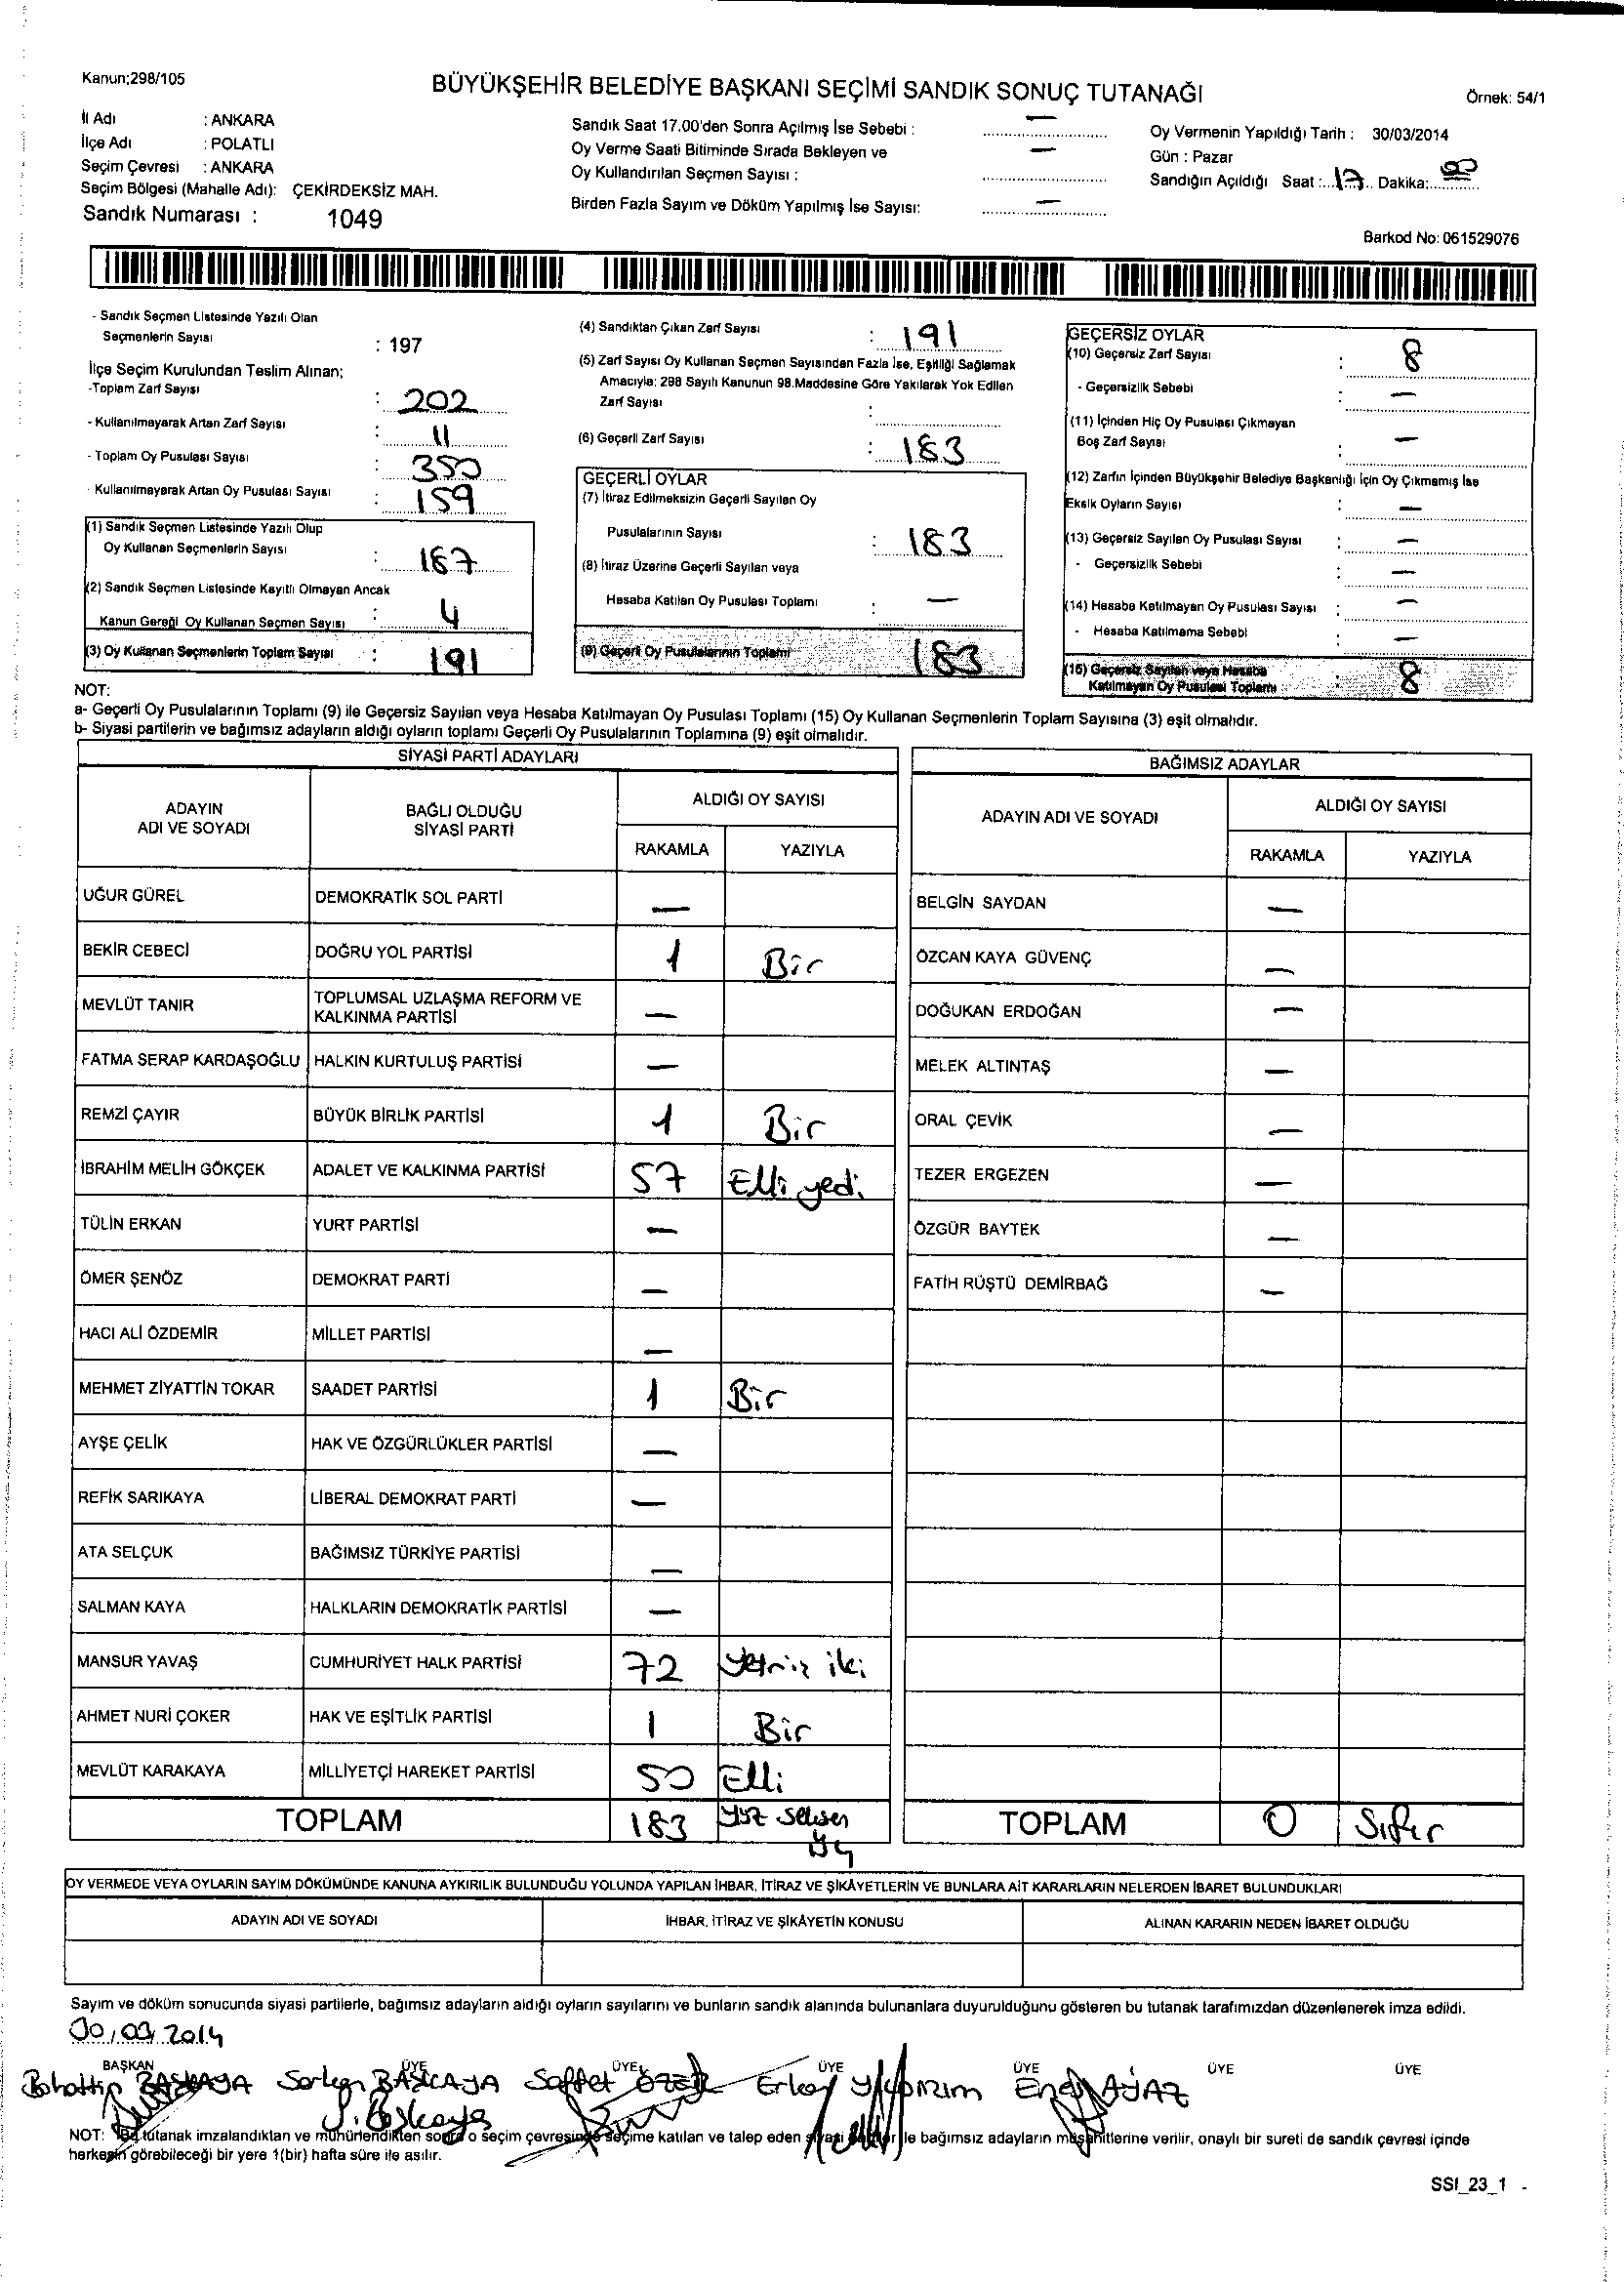 Kanun;298/105
BÜYÜKŞEHİR BELEDİYE BAŞKANI SEÇİMİ SANDIK SONUÇ TUTANAĞI
Örnek: 54/1
İl Adı : ANKARA
İlçe Adı : POLATLI
Seçim Çevresi : ANKARA
Seçim Bölgesi (Mahalle Adı): ÇEKİRDEKSİZ MAH.
Sandık Numarası : 1049
Sandık Saat 17.00'den Sonra Açılmış İse Sebebi : —
Oy Verme Saati Bitiminde Sırada Bekleyen ve
Oy Kullandırılan Seçmen Sayısı : —
Birden Fazla Sayım ve Döküm Yapılmış İse Sayısı: —
Oy Vermenin Yapıldığı Tarih : 30/03/2014
Gün : Pazar
Sandığın Açıldığı Saat :..17.. Dakika:..00
Barkod No: 061529076
- Sandık Seçmen Listesinde Yazılı Olan
Seçmenlerin Sayısı : 197
İlçe Seçim Kurulundan Teslim Alınan;
-Toplam Zarf Sayısı : 202
- Kullanılmayarak Artan Zarf Sayısı : 11
- Toplam Oy Pusulası Sayısı : 350
- Kullanılmayarak Artan Oy Pusulası Sayısı : 159
(1) Sandık Seçmen Listesinde Yazılı Olup
Oy Kullanan Seçmenlerin Sayısı : 187
(2) Sandık Seçmen Listesinde Kayıtlı Olmayan Ancak
Kanun Gereği Oy Kullanan Seçmen Sayısı : 4
(3) Oy Kullanan Seçmenlerin Toplam Sayısı : 191
(4) Sandıktan Çıkan Zarf Sayısı : 191
(5) Zarf Sayısı Oy Kullanan Seçmen Sayısından Fazla İse, Eşitliği Sağlamak
Amacıyla; 298 Sayılı Kanunun 98.Maddesine Göre Yakılarak Yok Edilen
Zarf Sayısı :
(6) Geçerli Zarf Sayısı : 183
GEÇERLİ OYLAR
(7) İtiraz Edilmeksizin Geçerli Sayılan Oy
Pusulalarının Sayısı : 183
(8) İtiraz Üzerine Geçerli Sayılan veya
Hesaba Katılan Oy Pusulası Toplamı : —
(9) Geçerli Oy Pusulalarının Toplamı 183
GEÇERSİZ OYLAR
(10) Geçersiz Zarf Sayısı : 8
- Geçersizlik Sebebi : —
(11) İçinden Hiç Oy Pusulası Çıkmayan
Boş Zarf Sayısı : —
(12) Zarfın İçinden Büyükşehir Belediye Başkanlığı İçin Oy Çıkmamış İse
Eksik Oyların Sayısı —
(13) Geçersiz Sayılan Oy Pusulası Sayısı : —
- Geçersizlik Sebebi : —
(14) Hesaba Katılmayan Oy Pusulası Sayısı : —
- Hesaba Katılmama Sebebi : —
(15) Geçersiz Sayılan veya Hesaba
Katılmayan Oy Pusulası Toplamı : 8
NOT:
a- Geçerli Oy Pusulalarının Toplamı (9) ile Geçersiz Sayılan veya Hesaba Katılmayan Oy Pusulası Toplamı (15) Oy Kullanan Seçmenlerin Toplam Sayısına (3) eşit olmalıdır.
b- Siyasi partilerin ve bağımsız adayların aldığı oyların toplamı Geçerli Oy Pusulalarının Toplamına (9) eşit olmalıdır.
SİYASİ PARTİ ADAYLARI
ADAYIN ADI VE SOYADI
BAĞLI OLDUĞU SİYASİ PARTİ
ALDIĞI OY SAYISI
RAKAMLA YAZIYLA
UĞUR GÜREL DEMOKRATİK SOL PARTİ —
BEKİR CEBECİ DOĞRU YOL PARTİSİ 1 Bir
MEVLÜT TANIR TOPLUMSAL UZLAŞMA REFORM VE KALKINMA PARTİSİ —
FATMA SERAP KARDAŞOĞLU HALKIN KURTULUŞ PARTİSİ —
REMZİ ÇAYIR BÜYÜK BİRLİK PARTİSİ 1 Bir
İBRAHİM MELİH GÖKÇEK ADALET VE KALKINMA PARTİSİ 57 Elli yedi
TÜLİN ERKAN YURT PARTİSİ —
ÖMER ŞENÖZ DEMOKRAT PARTİ —
HACI ALİ ÖZDEMİR MİLLET PARTİSİ —
MEHMET ZİYATTİN TOKAR SAADET PARTİSİ 1 Bir
AYŞE ÇELİK HAK VE ÖZGÜRLÜKLER PARTİSİ —
REFİK SARIKAYA LİBERAL DEMOKRAT PARTİ —
ATA SELÇUK BAĞIMSIZ TÜRKİYE PARTİSİ —
SALMAN KAYA HALKLARIN DEMOKRATİK PARTİSİ —
MANSUR YAVAŞ CUMHURİYET HALK PARTİSİ 72 Yetmiş iki
AHMET NURİ ÇOKER HAK VE EŞİTLİK PARTİSİ 1 Bir
MEVLÜT KARAKAYA MİLLİYETÇİ HAREKET PARTİSİ 50 Elli
TOPLAM 183 Yüz seksen üç
BAĞIMSIZ ADAYLAR
ADAYIN ADI VE SOYADI
ALDIĞI OY SAYISI
RAKAMLA YAZIYLA
BELGİN SAYDAN —
ÖZCAN KAYA GÜVENÇ —
DOĞUKAN ERDOĞAN —
MELEK ALTINTAŞ —
ORAL ÇEVİK —
TEZER ERGEZEN —
ÖZGÜR BAYTEK —
FATİH RÜŞTÜ DEMİRBAĞ —
TOPLAM 0 Sıfır
OY VERMEDE VEYA OYLARIN SAYIM DÖKÜMÜNDE KANUNA AYKIRILIK BULUNDUĞU YOLUNDA YAPILAN İHBAR, İTİRAZ VE ŞİKÂYETLERİN VE BUNLARA AİT KARARLARIN NELERDEN İBARET BULUNDUKLARI
ADAYIN ADI VE SOYADI
İHBAR, İTİRAZ VE ŞİKÂYETİN KONUSU
ALINAN KARARIN NEDEN İBARET OLDUĞU
Sayım ve döküm sonucunda siyasi partilerle, bağımsız adayların aldığı oyların sayılarını ve bunların sandık alanında bulunanlara duyurulduğunu gösteren bu tutanak tarafımızdan düzenlenerek imza edildi.
30/03/2014
BAŞKAN ÜYE ÜYE ÜYE ÜYE ÜYE ÜYE
BAŞKAYA Serkan BAŞKAYA Saffet ÖZER YILDIRIM AYAZ
NOT: Bu tutanak imzalandıktan ve mühürlendikten sonra o seçim çevresinde seçime katılan ve talep eden siyasi partiler ile bağımsız adayların müşahitlerine verilir, onaylı bir sureti de sandık çevresi içinde
herkesin görebileceği bir yere 1(bir) hafta süre ile asılır.
SSI_23_1